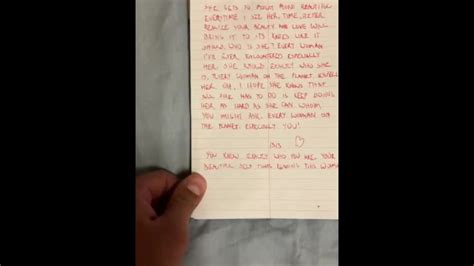 SHE GETS SO MUCH MORE BEAUTIFUL
EVERYTIME I SEE HER. TIME
BECAUSE YOUR BEAUTY AND LOVE WILL
BRING IT TO ITS KNEES LIKE IT
SHOULD. WHO IS SHE? EVERY WOMAN
I'VE EVER ENCOUNTERED ESPECIALLY
HER. SHE KNOWS EXACTLY WHO SHE
IS. EVERY WOMAN ON THE PLANET
HER. I HOPE SHE KNOWS THAT
ALL SHE HAS TO DO IS KEEP BEING
HER AS HARD AS SHE CAN. WHOM,
YOU MIGHT ASK. EVERY WOMAN ON
THE PLANET. ESPECIALLY YOU!
YOU KNOW EXACTLY WHO YOU ARE YOUR
BEAUTIFUL READING THIS